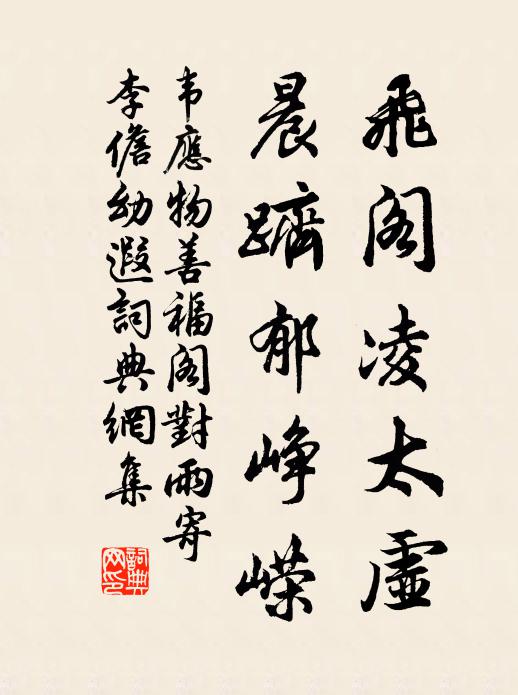 飛閣凌太虛
晨躋郁峥嵘
韦應物善福阁對雨寄
李儋幼遐詞典網集
詞典网印